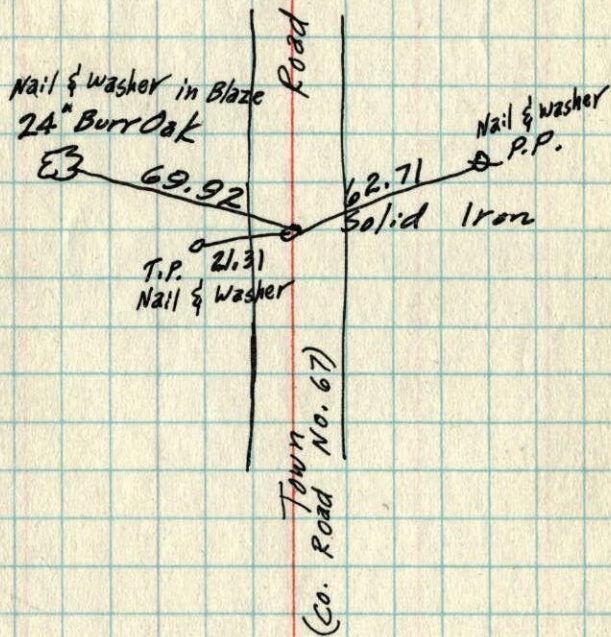 Road
Nail & Washer in Blaze
24" Burr Oak
Nail & Washer
P.P.
69.92
62.71
Solid Iron
T.P. 21.31
Nail & Washer
Town
(Co. Road No. 67)